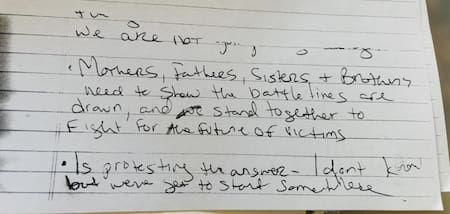 we are not
• Mothers, Fathers, Sisters + Brothers
need to show the battle lines are
drawn, and we stand together to
Fight for the future of victims
• Is protesting the answer - I dont know
but weve got to start somewhere